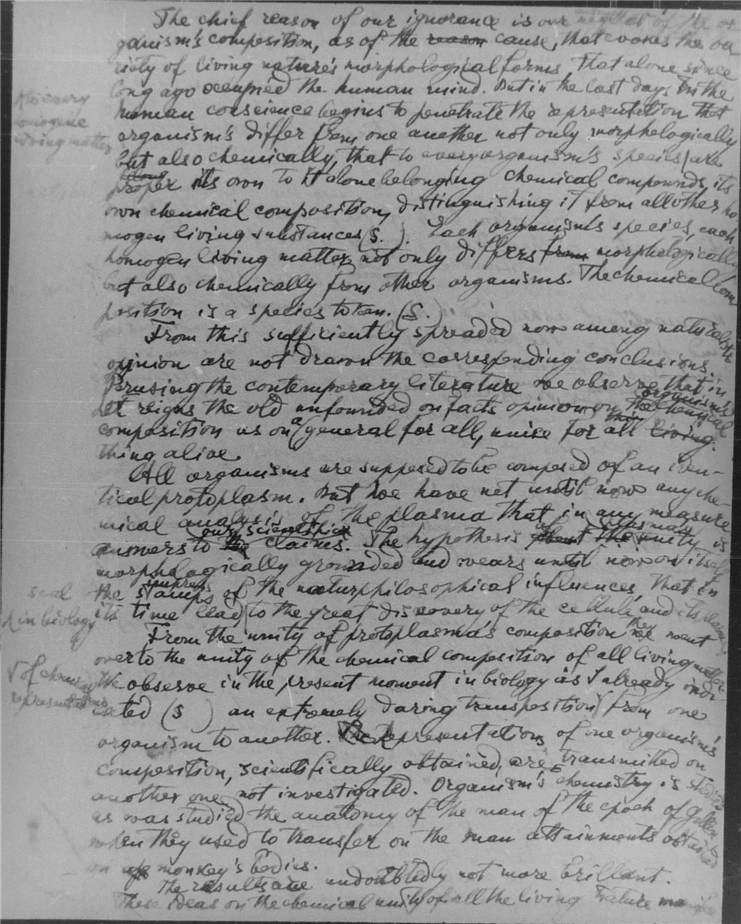 The chief reason of our ignorance is our neglect of the or-
ganism's composition, as of the reason cause, that evokes the va-
riety of living nature's morphological forms that alone since
long ago occupied the human mind. But in the last days in the
human conscience begins to penetrate the representation that
organism's differ from one another not only morphologically
but also chemically, that to every organism's species are
proper its own to it alone belonging chemical compounds, its
own chemical composition, distinguishing it from all other ho
mogen living substances (S. ). Each organism's species, each
homogen living matter, not only differs from morphologically
but also chemically from other organisms. The chemical com
position is a species token. (S. )
From this sufficiently spreaded now among naturalists
opinion are not drawn the corresponding conclusions.
Perusing the contemporary literature we observe that in
it reigns the old unfounded on facts opinion on organism's chemical
composition as on a general for all, unice for all living.
thing alive.
All organisms are supposed to be composed of an iden-
tical protoplasm. But we have not until now any che-
mical analysis of the plasma that in any measure
answers to our scientific claims. The hypothesis about the unity is
morphologically grounded and wears until now on itself
the stamp of the naturphilosophical influences, that in
its time lead to the great discovery of the cellule, and its
From the unity of protoplasma's composition they went
over to the unity of the chemical composition of all living matter.
We observe in the present moment in biology as I already indi
cated (S ) an extremely daring transposition from one
organism to another. Representations of one organism's
composition, scientifically obtained, are transmitted on
another one, not investigated. Organism's chemistry is studied
as was studied the anatomy of the man of the epoch of Galen
when they used to transfer on the man attainments obtained
on monkey's bodies.
The results are undoubtedly not more brillant.
These ideas on the chemical unity of all the living nature
living matter
in biology
of chemical